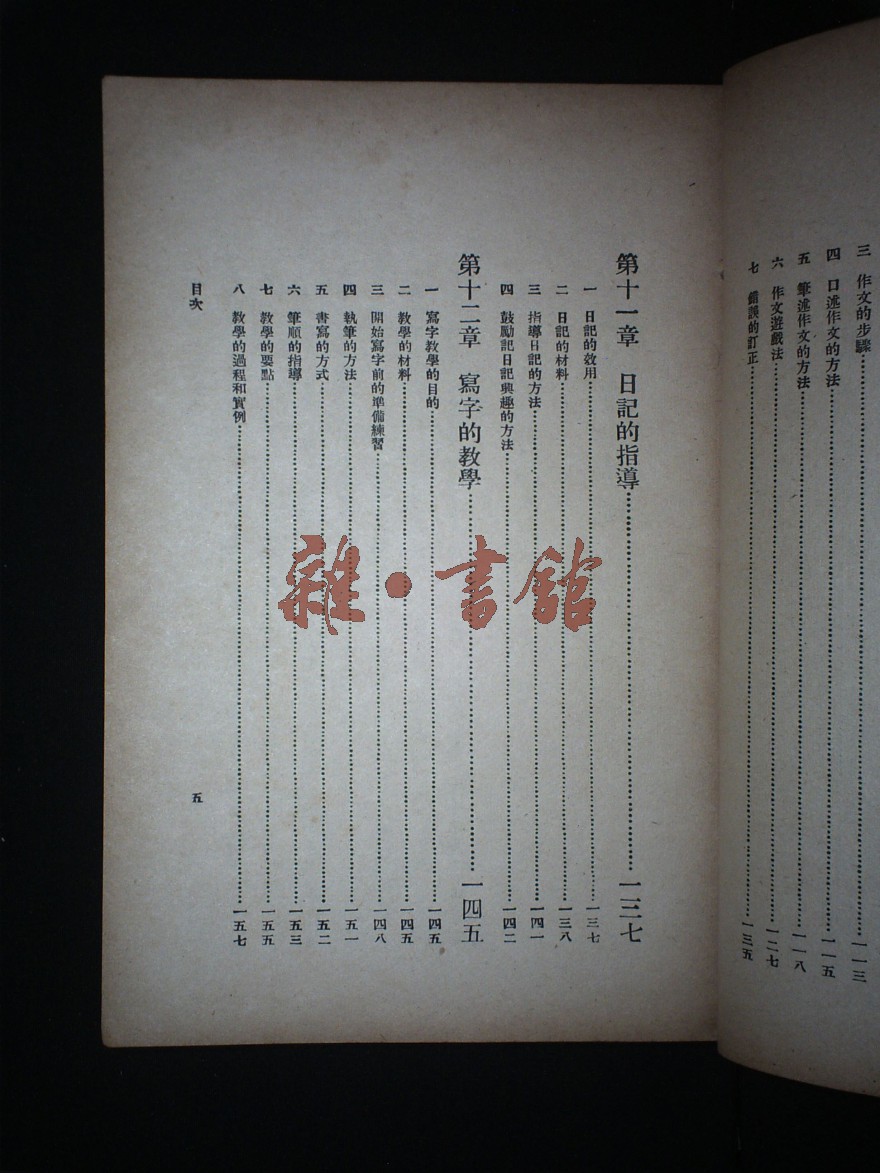 三 作文的步驟……一一三
四 口述作文的方法……一一五
五 筆述作文的方法……一一八
六 作文遊戲法……一二七
七 錯誤的訂正……一三五
第十一章 日記的指導……一三七
一 日記的效用……一三七
二 日記的材料……一三八
三 指導日記的方法……一四一
四 鼓勵記日記興趣的方法……一四二
第十二章 寫字的教學……一四五
一 寫字教學的目的……一四五
二 教學的材料……一四五
三 開始寫字前的準備練習……一四八
四 執筆的方法……一五一
五 書寫的方式……一五二
六 筆順的指導……一五三
七 教學的要點……一五五
八 教學的過程和實例……一五七
目次
五
雜·書館